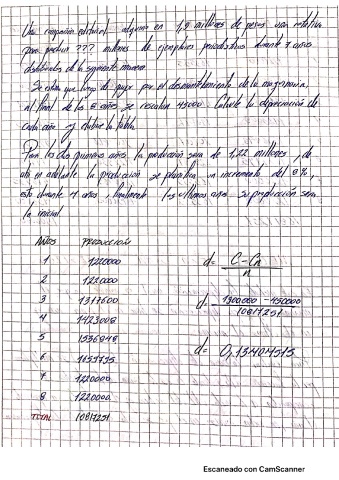 Una compañía editorial adquiere en 1,3 millones de pesos una rotativa
para producir ??? millones de ejemplares periodísticos durante 7 años
distribuidos de la siguiente manera
Se estima que luego de pagar por el desmantelamiento de la maquinaria,
al final de los 8 años se rescatan 45000. Calcule la depreciación de
cada año y elabore la tabla
Para los dos primeros años, la producción será de 1,22 millones, de
ahí en adelante la producción se planifica un incremento del 8%,
esto durante 4 años, finalmente los últimos años su producción será
la inicial
AÑOS PRODUCCIÓN
1 1220000
2 1220000
3 1317600
4 1423008
5 1536848
6 1659795
7 1220000
8 1220000
TOTAL 10817251
d= C-Cn
n
d= 1300000-450000
10817251
d= 0,13404515
Escaneado con CamScanner